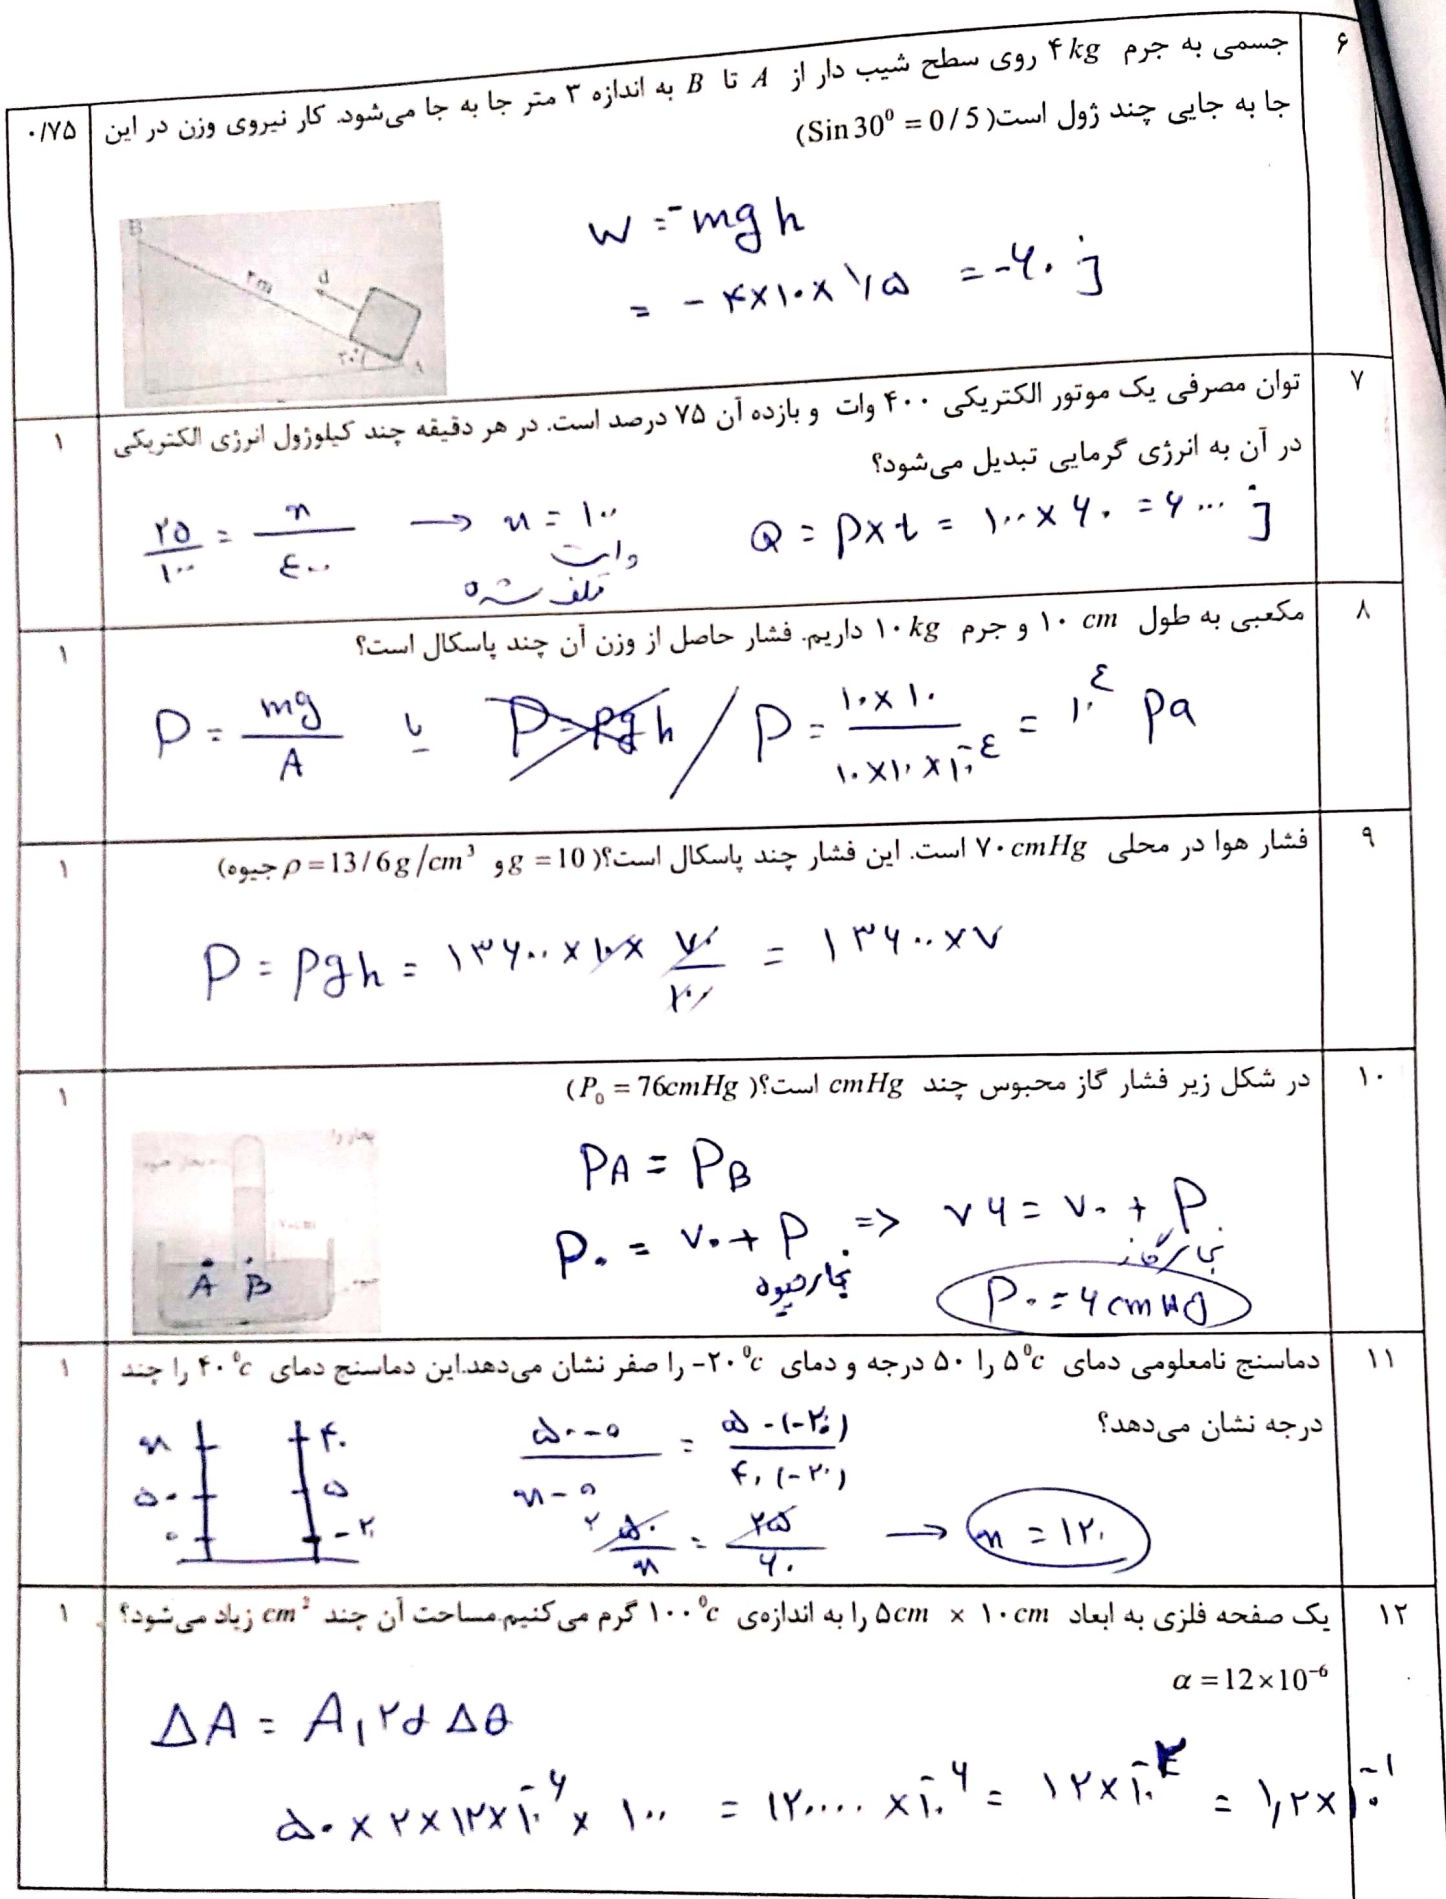 ۶
جسمی به جرم ۴ kg روی سطح شیب دار از A تا B به اندازه ۳ متر جا به جا می‌شود. کار نیروی وزن در این
۰/۷۵
جا به جایی چند ژول است( Sin 30⁰ = 0/5)
W = -mgh
= - ۴×۱۰× ۱/۵ = -۶۰ j
B
۳m
d
۳۰°
A
۷
توان مصرفی یک موتور الکتریکی ۴۰۰ وات و بازده آن ۷۵ درصد است. در هر دقیقه چند کیلوژول انرژی الکتریکی
۱
در آن به انرژی گرمایی تبدیل می‌شود؟
۲۵/۱۰۰ = x/۴۰۰ → x = ۱۰۰
وات
تلف شده
Q = P×t = ۱۰۰×۶۰ = ۶۰۰۰ j
۸
مکعبی به طول ۱۰ cm و جرم ۱۰ kg داریم. فشار حاصل از وزن آن چند پاسکال است؟
۱
P = mg/A یا P=ρgh / P = ۱۰×۱۰/۱۰×۱۰×۱۰⁻⁴ = ۱۰⁴ Pa
۹
فشار هوا در محلی ۷۰ cmHg است. این فشار چند پاسکال است؟( g = 10 و ρ = 13/6 g/cm³ جیوه)
۱
P = ρgh = ۱۳۶۰۰ × ۱۰ × ۷۰/۱۰۰ = ۱۳۶۰۰×۷
۱۰
در شکل زیر فشار گاز محبوس چند cmHg است؟( P₀ = 76cmHg )
۱
PA = PB
P۰ = ۷۰ + P بخار جیوه => ۷۶ = ۷۰ + P بخار گاز
P۰ = ۶ cmHg
A B
۱۱
دماسنج نامعلومی دمای ۵⁰c را ۵۰ درجه و دمای ۲۰⁰c- را صفر نشان می‌دهد.این دماسنج دمای ۴۰⁰c را چند
۱
درجه نشان می‌دهد؟
x ۴۰
۵۰ ۵
۰ -۲۰
۵۰-۰/x-۰ = ۵-(-۲۰)/۴۰,(-۲۰)
۲ ۵۰/x = ۲۵/۶۰ → x = ۱۲۰
۱۲
یک صفحه فلزی به ابعاد ۵cm × ۱۰cm را به اندازه‌ی ۱۰۰⁰c گرم می‌کنیم.مساحت آن چند cm² زیاد می‌شود؟
۱
α = 12×10⁻⁶
ΔA = A₁ ۲α Δθ
۵۰ × ۲ × ۱۲ × ۱۰⁻⁶ × ۱۰۰ = ۱۲۰۰۰۰ × ۱۰⁻⁶ = ۱۲×۱۰⁻² = ۱,۲×۱۰⁻¹